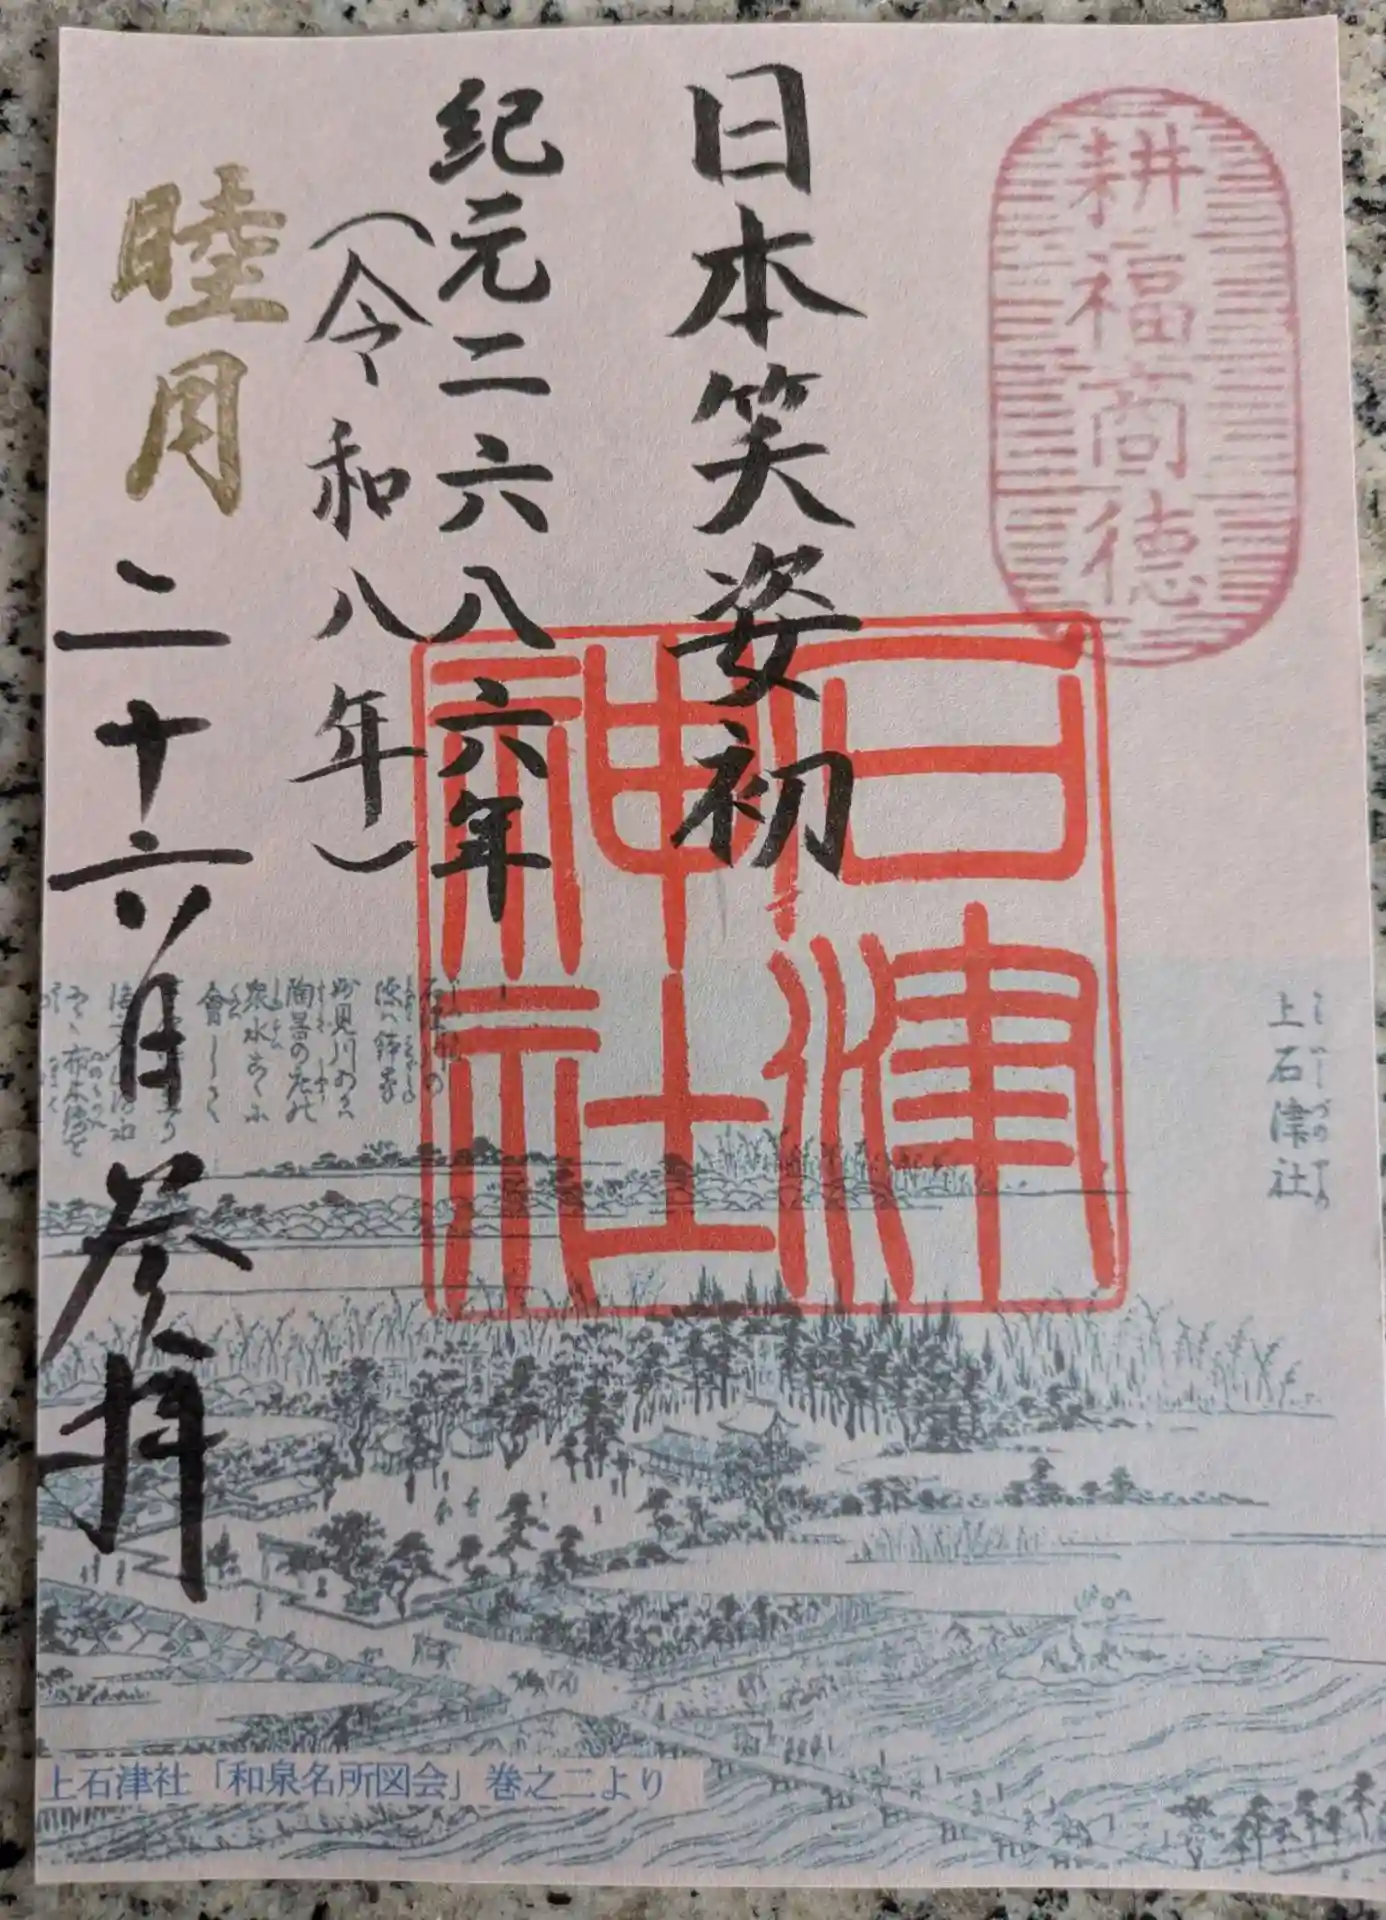 耕福商徳
日本笑姿初
紀元二六八六年
（令和八年）
睦月二十六日参拝
石津神社
上石津社
上石津社「和泉名所図会」巻之二より